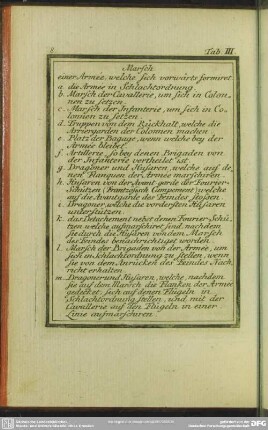 8 Tab III
Marsch
einer Armée, welche sich vorwärts formiret
a. die Armée in Schlachtordnung
b. Marsch der Cavallerie, um sich in Colon-
nen zu setzen
c. Marsch der Infanterie, um sich in Co-
lonnen zu setzen
d. Truppen von dem Rückhalt, welche die
Arriergarden der Colonnen machen
e. Platz der Bagage, wenn welche bey der
Armée bleibet
f. Artillerie, so bey denen Brigaden von
der Infanterie vertheilet ist
g. Dragoner und Husaren, welche auf de-
nen Flanquen der Armée marschiren
h. Husaren von der Avant-garde der Fourier-
Schützen (Frantzösisch Campement) welche
auf die Avantgarde des Feindes stossen
i. Dragoner, welche die vordersten Husaren
unterstützen
k. das Detachement nebst denen Fourier-Schü-
tzen welche aufmarschiret sind, nachdem
sie durch die Husaren von dem Marsch
des Feindes benachrichtiget worden
l. Marsch der Brigaden von der Armée, um
sich in Schlachtordnung zu stellen, wenn
sie von dem Anrücken des Feindes Nach
richt erhalten
m. Dragoner und Husaren, welche, nachdem
sie auf dem Marsch die Flanken der Armée
gedecket, sich auf denen Flügeln in
Schlachtordnung stellen, und mit der
Cavallerie auf den Flügeln in einer
Linie aufmarschiren